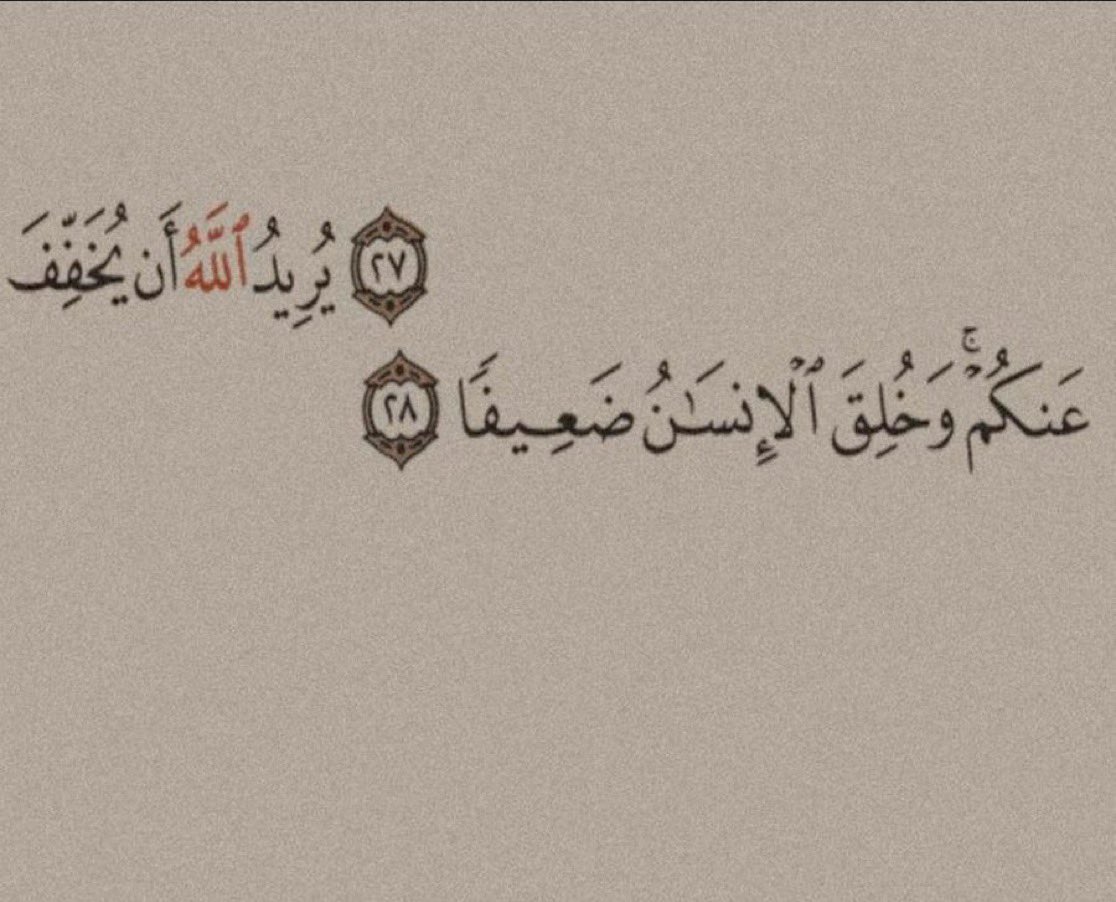 ٢٧ يُرِيدُ ٱللَّهُ أَن يُخَفِّفَ
عَنكُمۡۚ وَخُلِقَ ٱلۡإِنسَٰنُ ضَعِيفٗا ٢٨